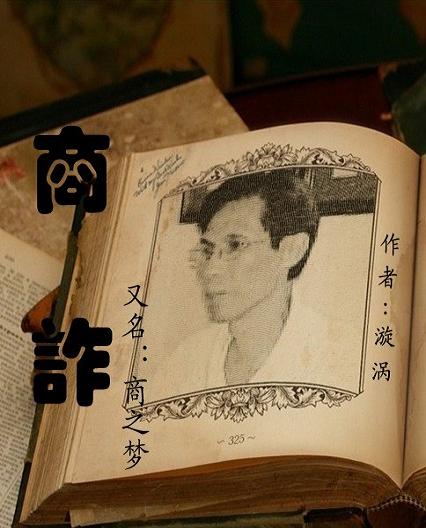 商詐
又名：商之梦
作者：漩涡
~ 325 ~